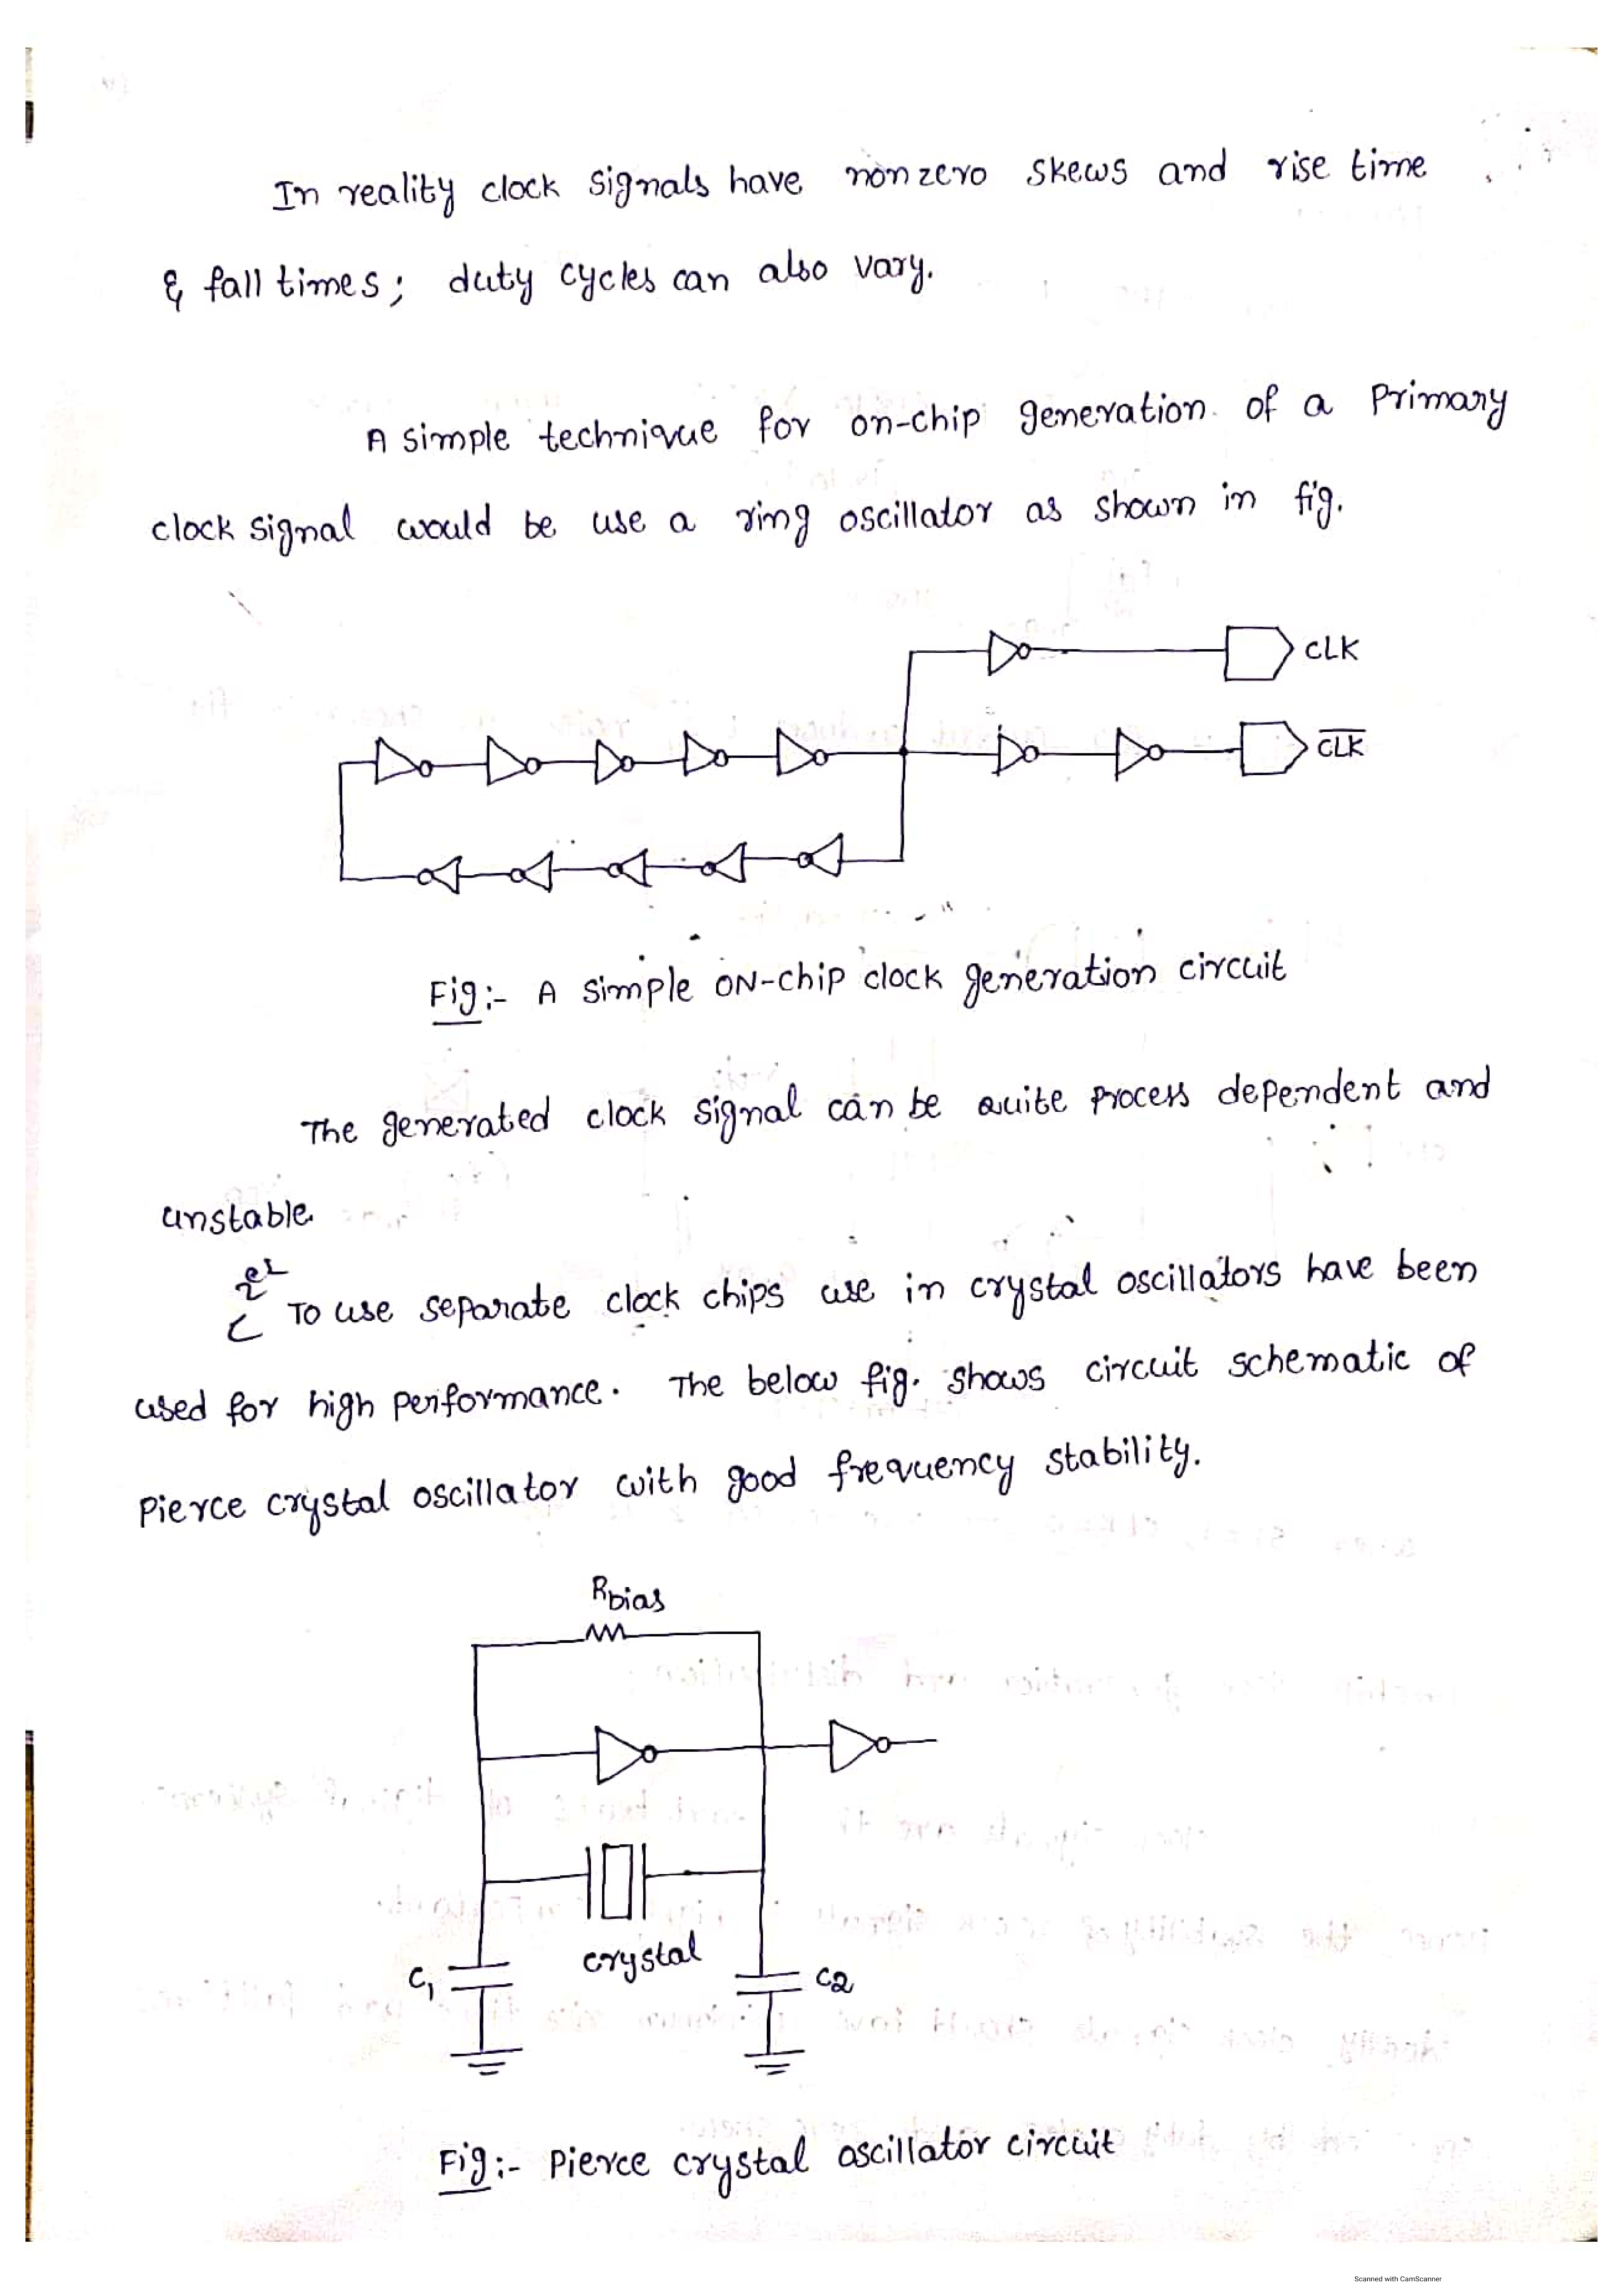 In reality clock signals have nonzero skews and rise time
& fall times; duty cycles can also vary.
A simple technique for on-chip generation of a primary
clock signal would be use a ring oscillator as shown in fig.
CLK
C̅L̅K̅
Fig:- A simple ON-chip clock generation circuit
The generated clock signal can be quite process dependent and
unstable.
To use separate clock chips use in crystal oscillators have been
used for high performance. The below fig. shows circuit schematic of
Pierce crystal oscillator with good frequency stability.
Rbias
crystal
C1
C2
Fig:- Pierce crystal oscillator circuit
Scanned with CamScanner